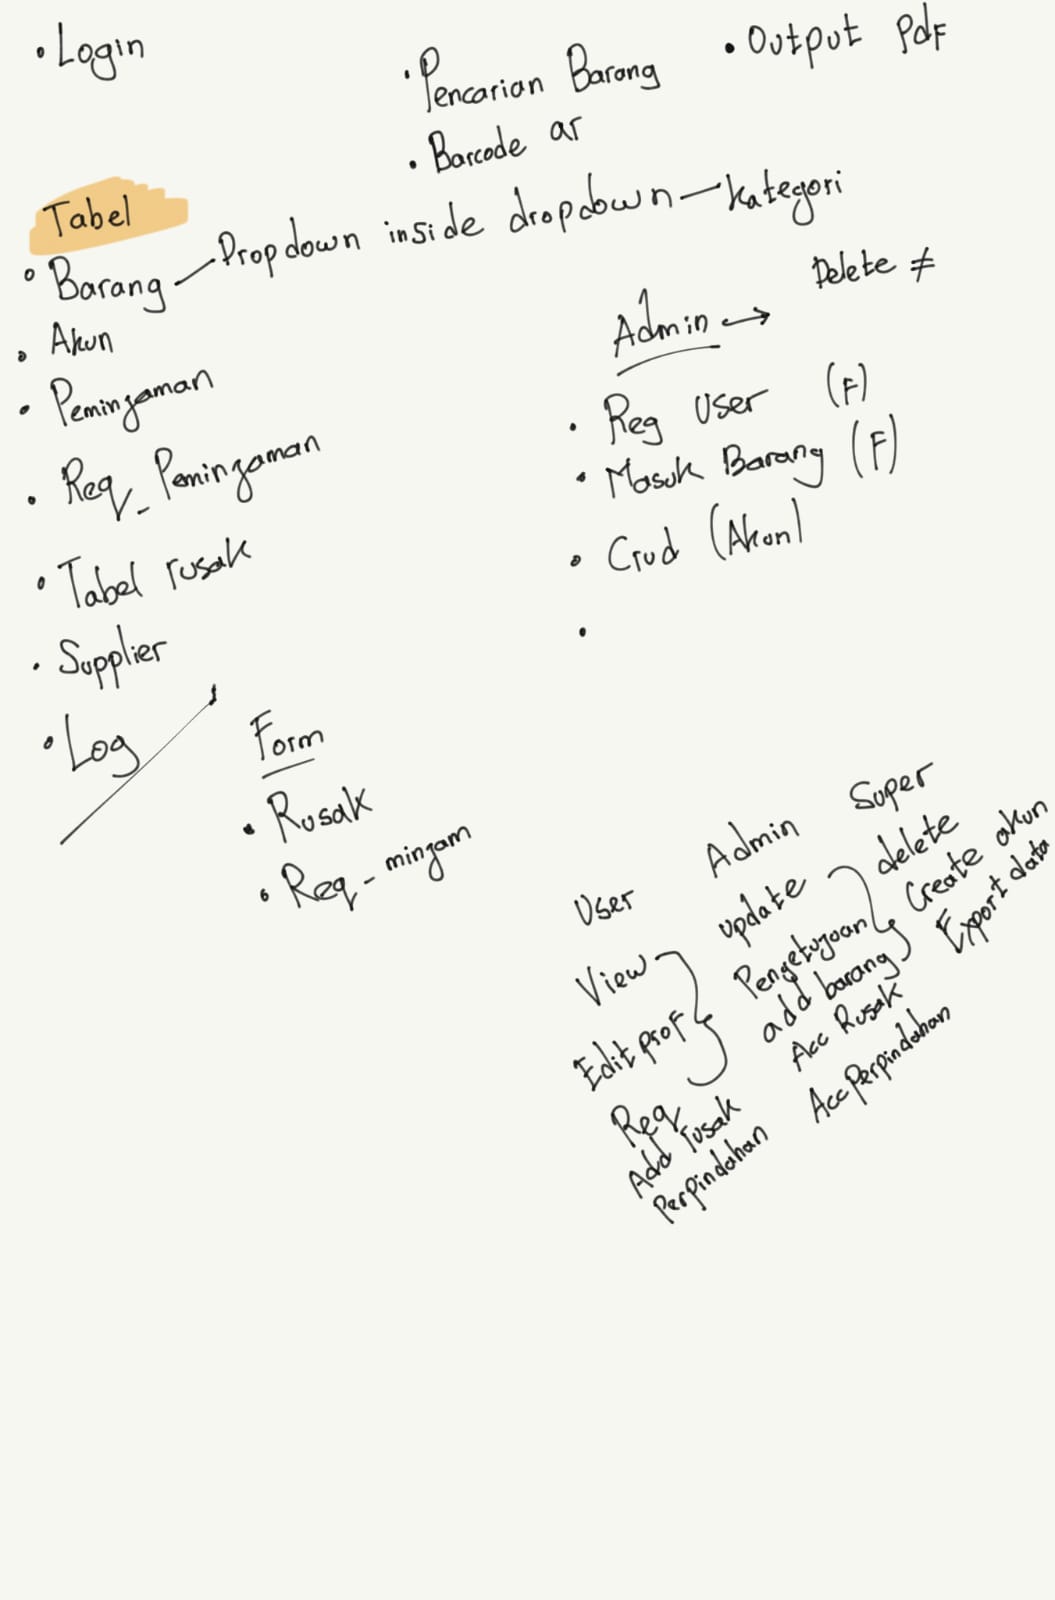 • Login
• Pencarian Barang
• Barcode ar
• Output Pdf
Tabel
• Barang — Dropdown inside dropdown — kategori
• Akun
• Peminjaman
• Req_Peminjaman
• Tabel rusak
• Supplier
• Log
Form
• Rusak
• Req - minjam
Admin → Delete ≠
• Reg User (F)
• Masuk Barang (F)
• Crud (Akun)
•
User
View
Edit prof
Req
Add rusak
Perpindahan
Admin
update
Pengetujuan
add barang
Acc Rusak
Acc Perpindahan
Super
delete
Create akun
Export data